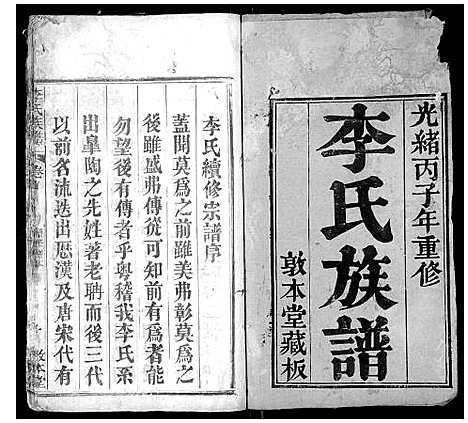 光緒丙子年重修
李氏族譜
敦本堂藏板
李氏續修宗譜序
蓋聞莫為之前雖美弗彰莫為之
後雖盛弗傳從可知前有為者能
勿望後有傳者乎粵稽我李氏系
出皐陶之先姓著老聃而後三代
以前名流迭出歷漢及唐宋代有
敦本堂